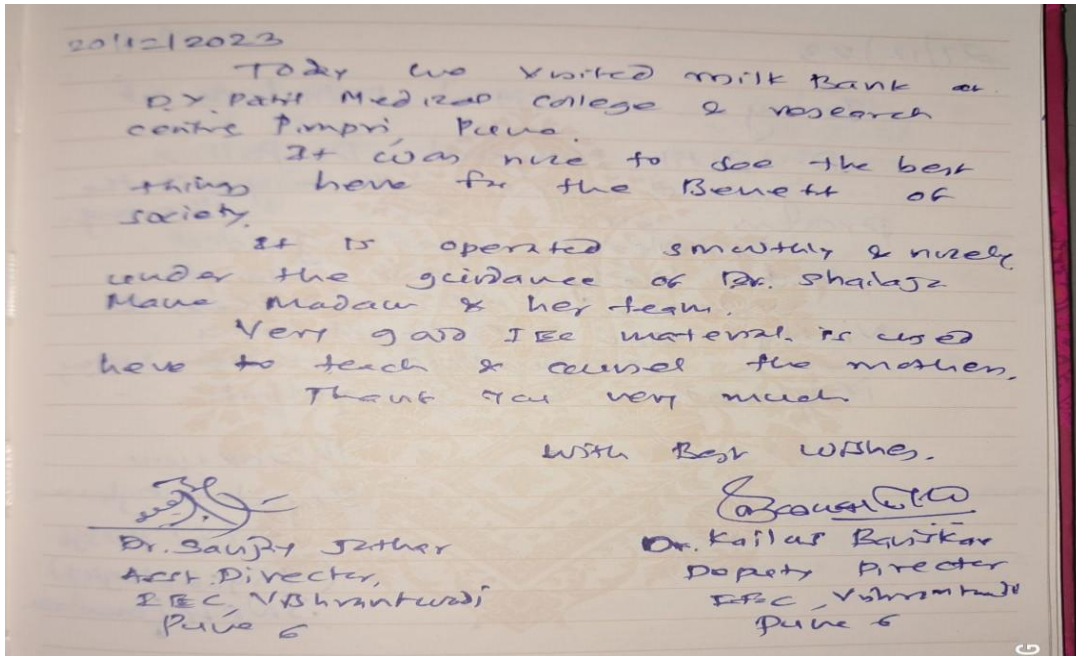 20/12/2023
Today we visited milk Bank at
D.Y. Patil Medical college & research
centre Pimpri, Pune.
It was nice to see the best
things here for the Benefit of
society.
It is operated smoothly & nicely
under the guidance of Dr. Shailaja
Mane Madam & her team.
Very good IEC material is used
here to teach & counsel the mothers.
Thank you very much
With Best Wishes.
Dr. Sanjay Jathar
Asst. Director,
IEC, Vishrantwadi
Pune 6
Dr. Kailas
Deputy Director
IEC, Vishrantwadi
Pune 6
G